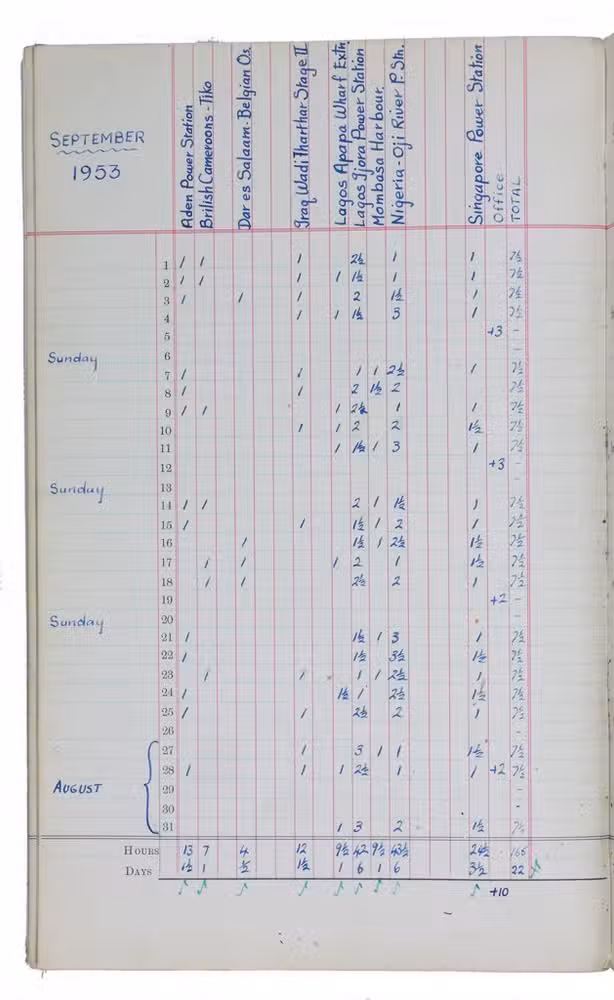 SEPTEMBER
1953
Aden Power Station
British Cameroons - Tiko
Dar es Salaam - Belgian Os.
Iraq Wadi Tharthar Stage II
Lagos Apapa Wharf Extn
Lagos Ijora Power Station
Mombasa Harbour.
Nigeria - Oji River P. Stn.
Singapore Power Station
Office
TOTAL
1 1 1 1 2½ 1 1 7½
2 1 1 1 1 1½ 1 1 7½
3 1 1 1 2 1½ 1 7½
4 1 1 1½ 3 1 7½
5 +3 -
Sunday 6 -
7 1 1 1 1 2½ 1 7½
8 1 1 2 1½ 2 7½
9 1 1 1 2½ 1 1 7½
10 1 1 2 2 1½ 7½
11 1 1½ 1 3 1 7½
12 +3 -
Sunday 13 -
14 1 1 2 1 1½ 1 7½
15 1 1 1½ 1 2 1 7½
16 1 1½ 1 2½ 1½ 7½
17 1 1 1 2 1 1½ 7½
18 1 1 2½ 2 1 7½
19 +2 -
Sunday 20 -
21 1 1½ 1 3 1 7½
22 1 1½ 3½ 1½ 7½
23 1 1 1 1 2½ 1 7½
24 1 1½ 1 2½ 1½ 7½
25 1 1 2½ 2 1 7½
26 -
27 1 3 1 1 1½ 7½
28 1 1 1 2½ 1 1 +2 7½
AUGUST 29 -
30 -
31 1 3 2 1½ 7½
HOURS 13 7 4 12 9½ 42 9½ 43½ 24½ 165
DAYS 1½ 1 ½ 1½ 1 6 1 6 3½ 22
+10